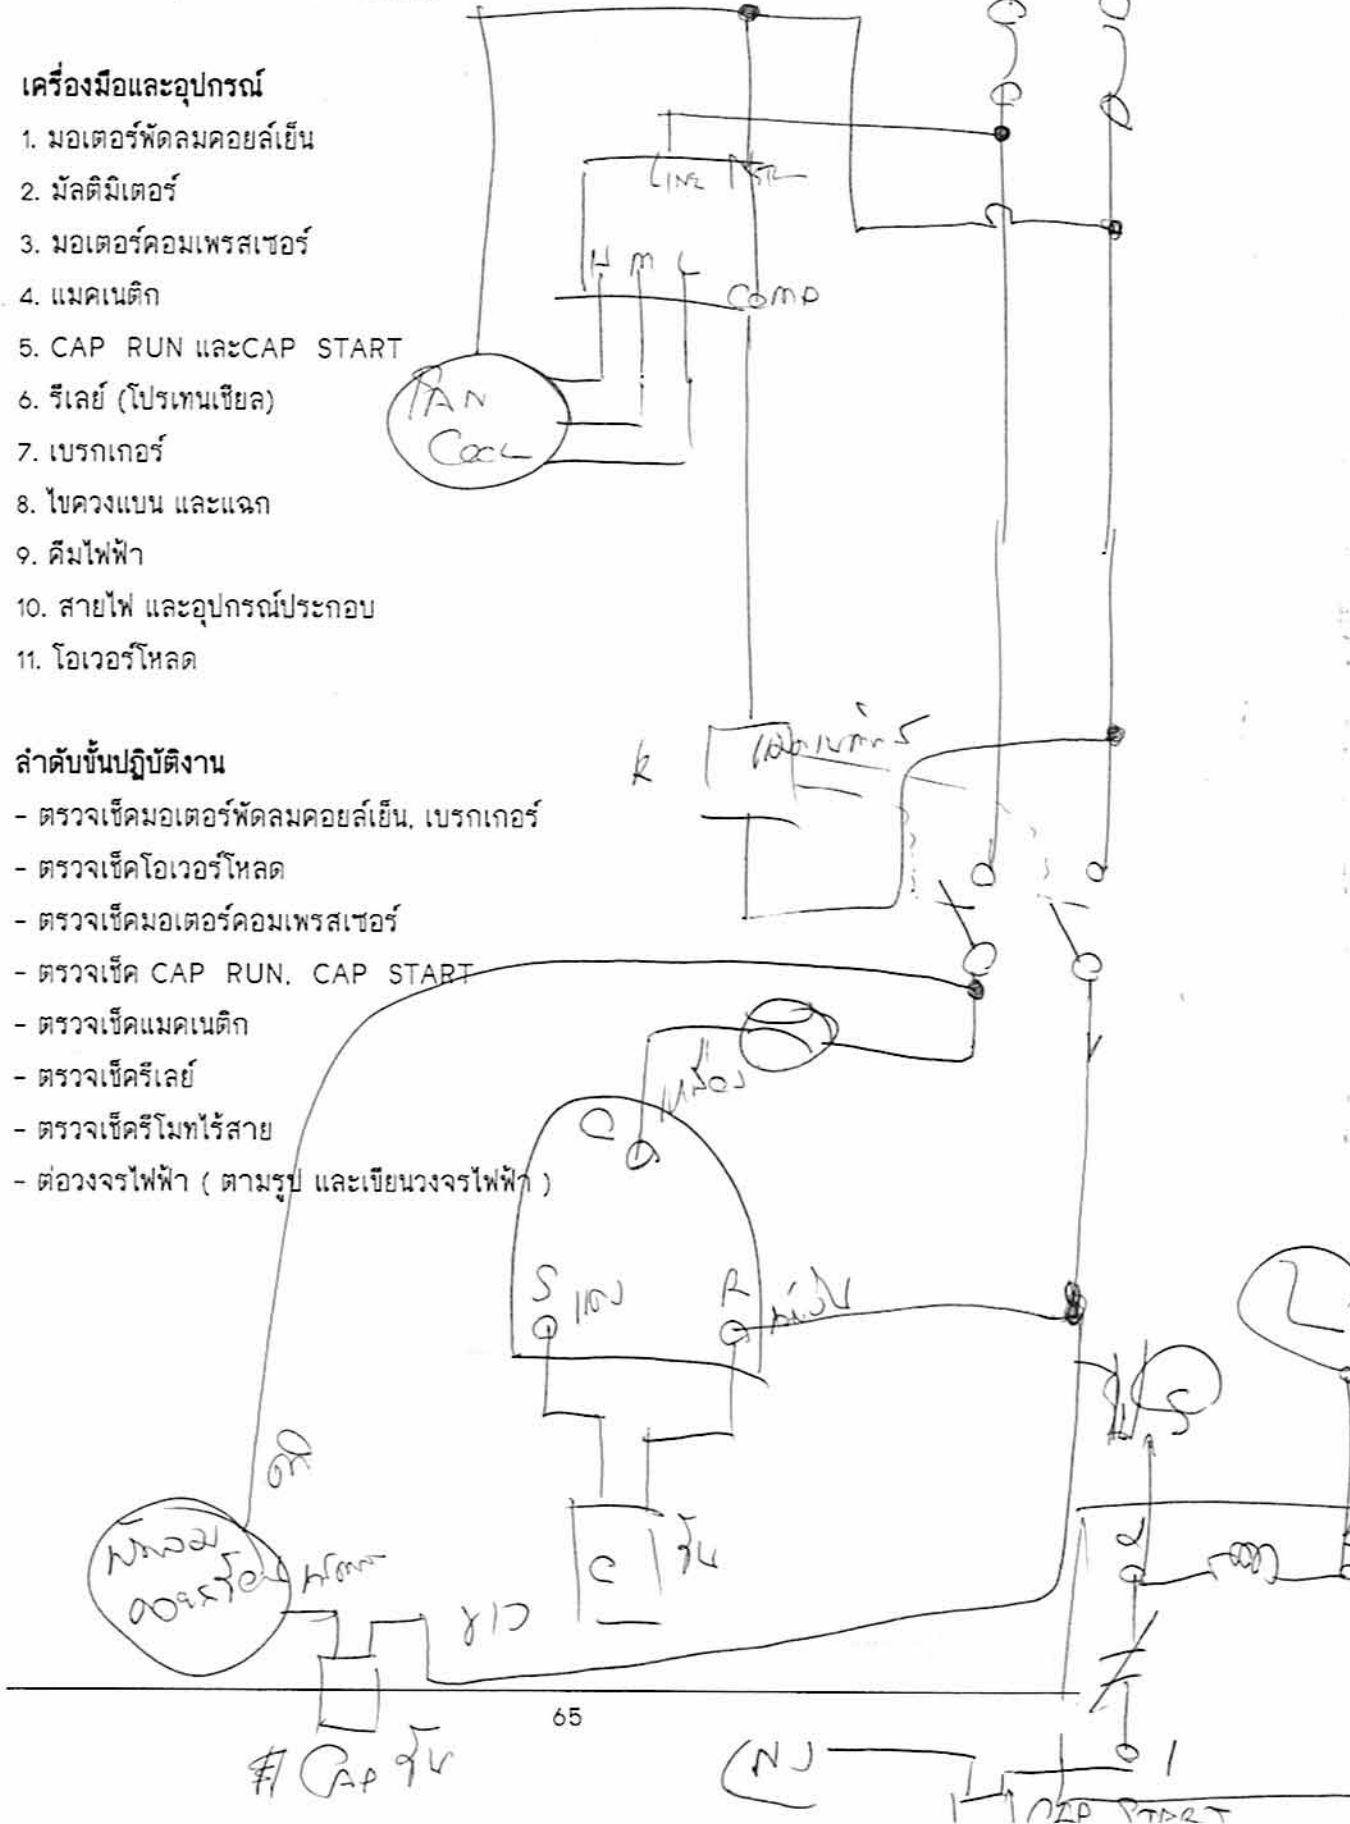 เครื่องมือและอุปกรณ์
1. มอเตอร์พัดลมคอยล์เย็น
2. มัลติมิเตอร์
3. มอเตอร์คอมเพรสเซอร์
4. แมคเนติก
5. CAP RUN และCAP START
6. รีเลย์ (โปรเทนเชียล)
7. เบรกเกอร์
8. ไขควงแบน และแฉก
9. คีมไฟฟ้า
10. สายไฟ และอุปกรณ์ประกอบ
11. โอเวอร์โหลด
LINE
H M L
COMP
FAN
COCL
ลำดับขั้นปฏิบัติงาน
- ตรวจเช็คมอเตอร์พัดลมคอยล์เย็น, เบรกเกอร์
- ตรวจเช็คโอเวอร์โหลด
- ตรวจเช็คมอเตอร์คอมเพรสเซอร์
- ตรวจเช็ค CAP RUN, CAP START
- ตรวจเช็คแมคเนติก
- ตรวจเช็ครีเลย์
- ตรวจเช็ครีโมทไร้สาย
- ต่อวงจรไฟฟ้า ( ตามรูป และเขียนวงจรไฟฟ้า )
k
C
S แดง
R
C รัน
ขาว
2
65
CAP รัน
(N)
1
CAP START